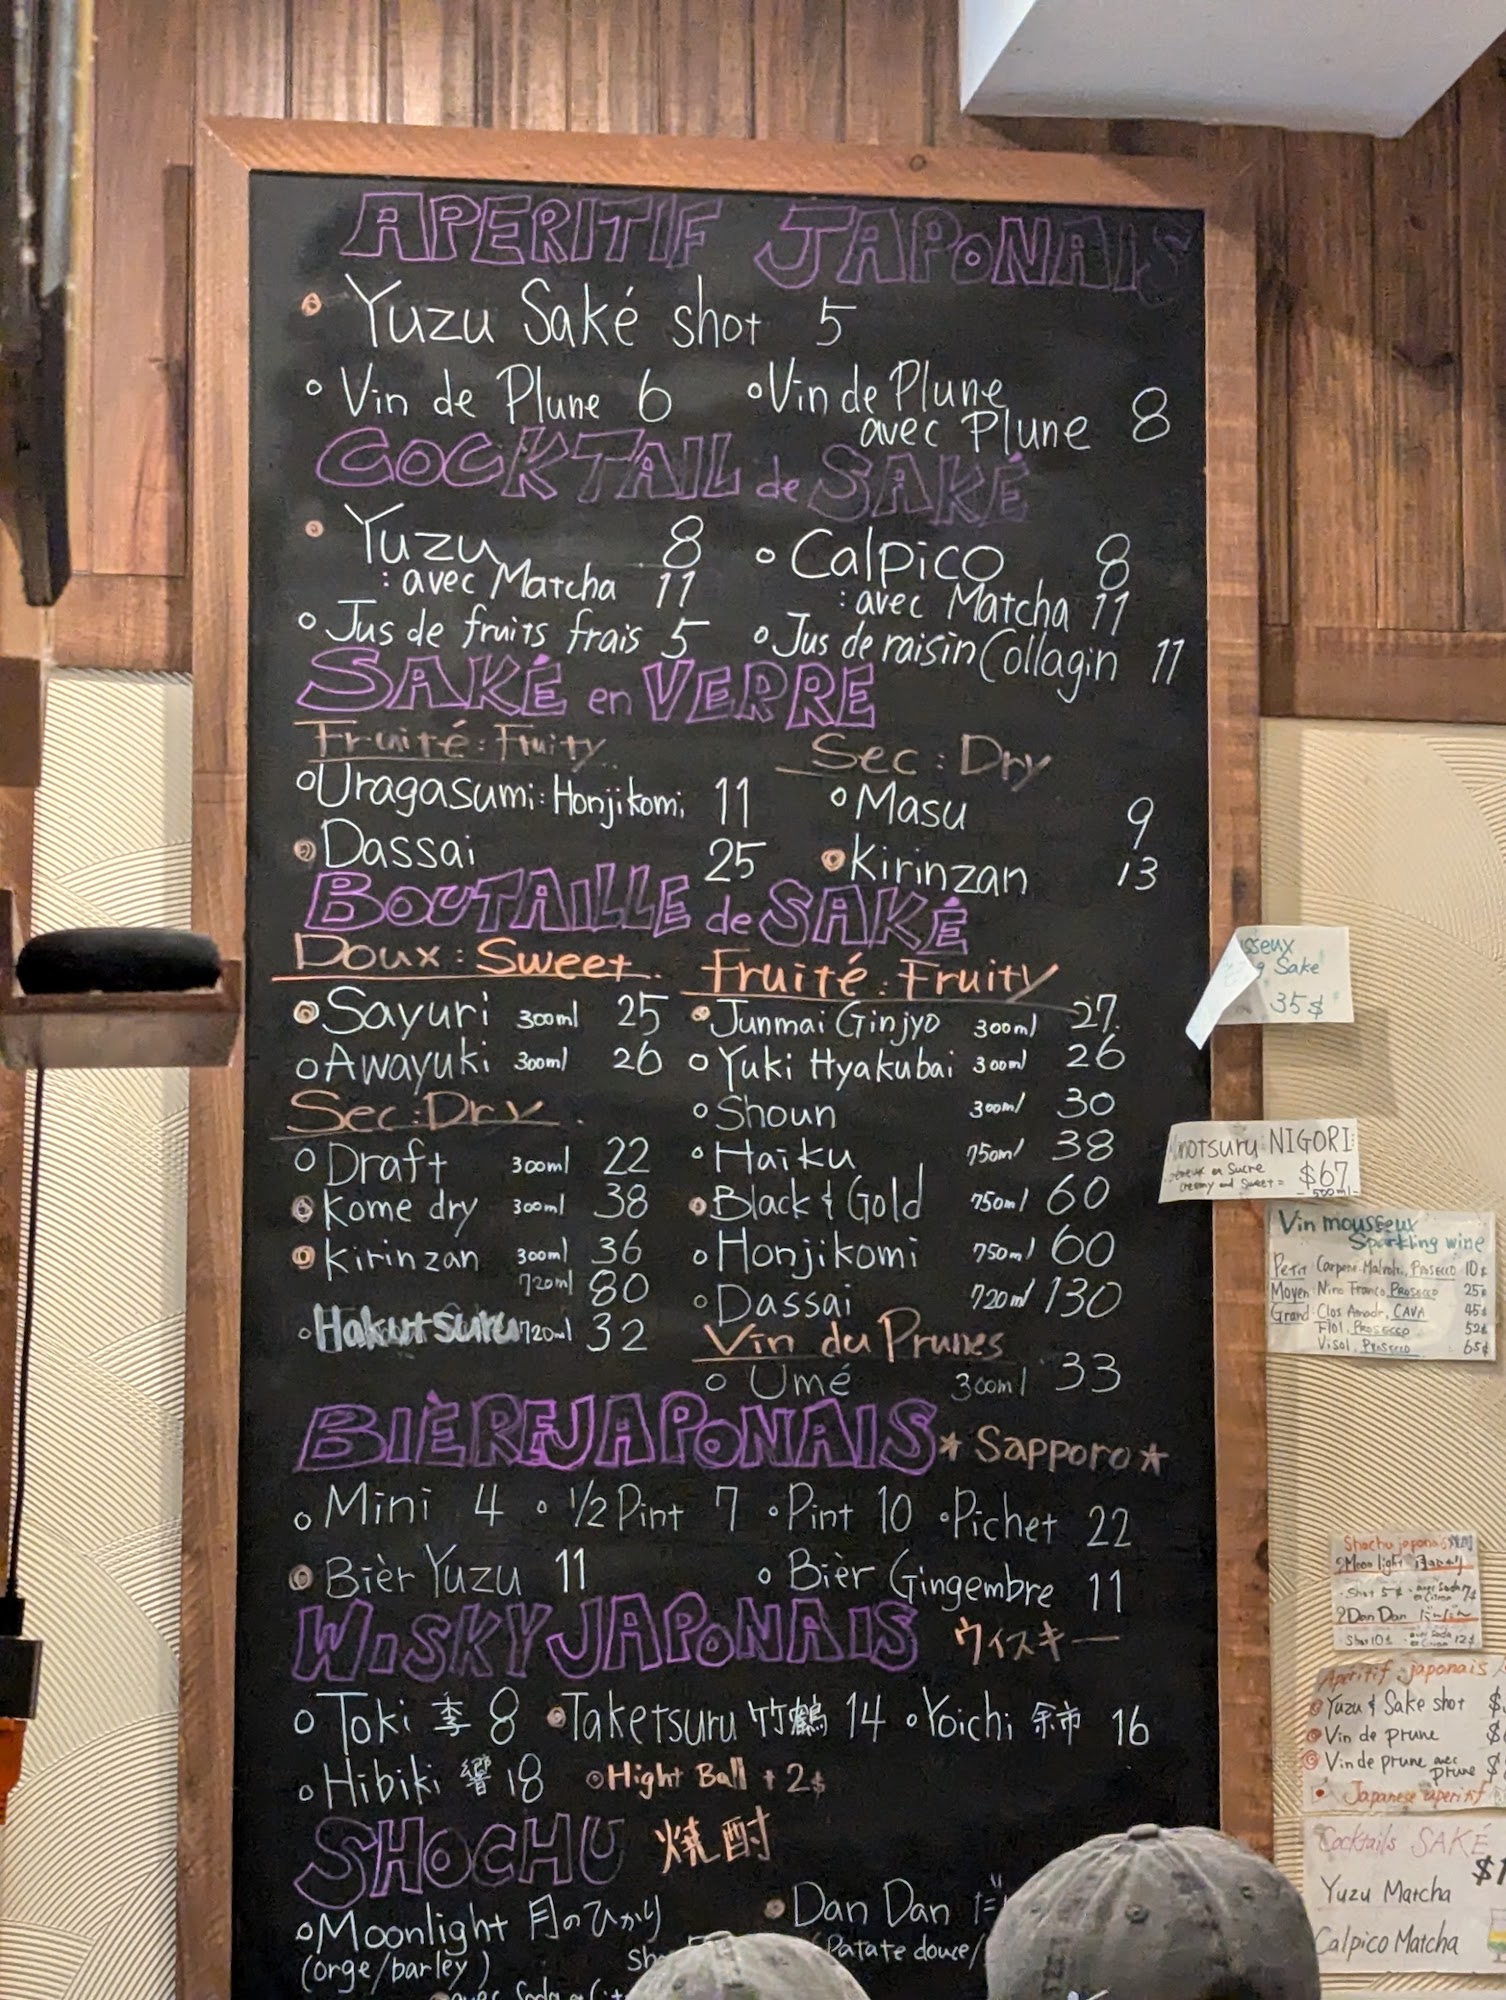 APERITIF JAPONAIS
Yuzu Saké shot 5
Vin de Plune 6
Vin de Plune
avec Plune 8
COCKTAIL de SAKÉ
Yuzu 8
: avec Matcha 11
Calpico 8
: avec Matcha 11
Jus de fruits frais 5
Jus de raisin Collagin 11
SAKÉ en VERRE
Fruité : Fruity
Uragasumi : Honjikomi 11
Dassai 25
Sec : Dry
Masu 9
Kirinzan 13
BOUTAILLE de SAKÉ
Doux : Sweet
Sayuri 300ml 25
Awayuki 300ml 26
Sec : Dry
Draft 300ml 22
Kome dry 300ml 38
Kirinzan 300ml 36
720ml 80
Hakutsuru 720ml 32
Fruité : Fruity
Junmai Ginjyo 300ml 27
Yuki Hyakubai 300ml 26
Shoun 300ml 30
Haiku 750ml 38
Black & Gold 750ml 60
Honjikomi 750ml 60
Dassai 720ml 130
Vin du Prunes
Umé 300ml 33
BIÈRE JAPONAIS * Sapporo *
Mini 4 1/2 Pint 7 Pint 10 Pichet 22
Bièr Yuzu 11 Bièr Gingembre 11
WISKY JAPONAIS ウイスキー
Toki 季 8 Taketsuru 竹鶴 14 Yoichi 余市 16
Hibiki 響 18 Hight Ball + 2$
SHOCHU 焼酎
Moonlight 月のひかり
(orge/barley)
Dan Dan だ
(Patate douce/
sseux
Sake
35$
notsuru NIGORI
en Sucre
creamy and sweet = $67
500ml
Vin mousseux
Sparkling wine
Petit PROSECCO 10$
Moyen Nino Franco, PROSECCO 25$
Grand Clos Amador, CAVA 45$
Flol, PROSECCO 52$
Visol, PROSECCO 65$
Shochu japonais 焼酎
Moon light 月のひかり
Shot 5$ avec Soda 7$
Dan Dan だんだん
Shot 10$ avec Soda 12$
Aperitif japonais
Yuzu & Sake shot $
Vin de prune $
Vin de prune avec prune $
Japanese aperitif
Cocktails SAKÉ
Yuzu Matcha $1
Calpico Matcha